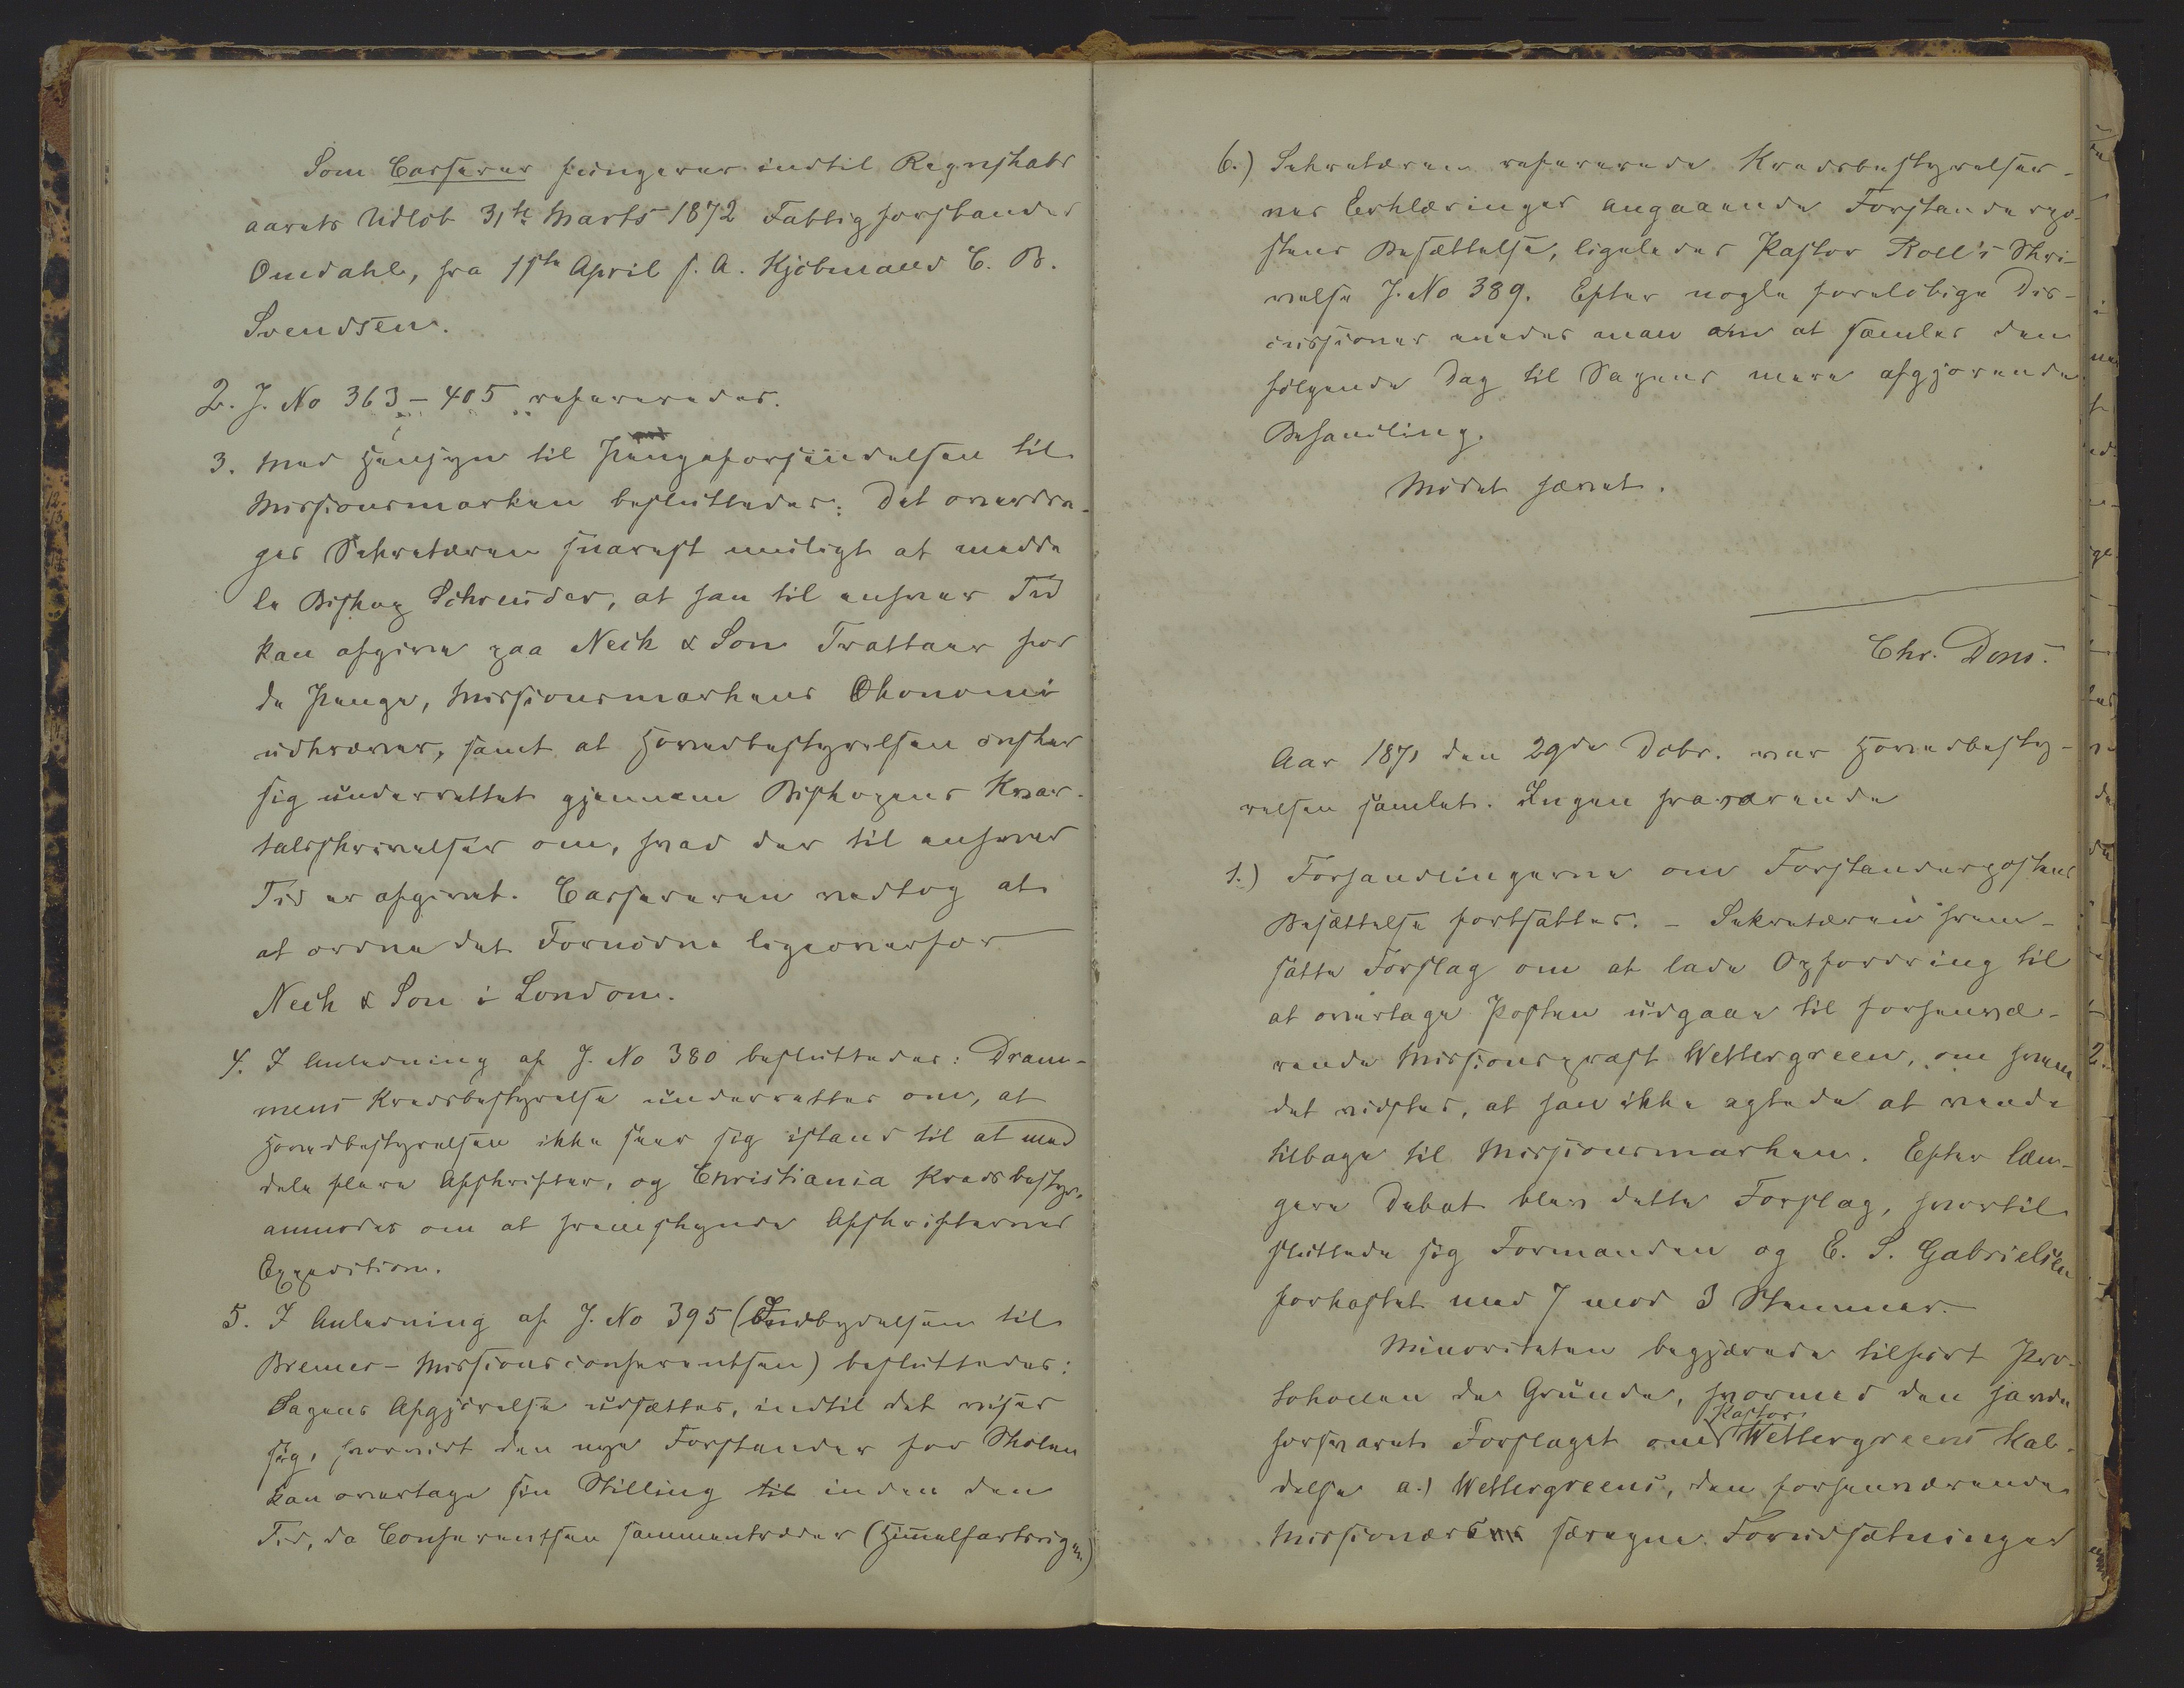 Som Casserer fungerer indtil Regnskabs
aarets Udløb 31te Marts 1872 Fattigforstander
Omdahl, fra 1ste April s. A. Kjøbmand C. B.
Svendsen.
2. J. No 363 – 405 refereredes.
3. Med Hensyn til Pengeforsendelsen til
Missionsmarken besluttedes: Det overdra-
ges Sekretæren snarest muligt at medde
le Biskop Schreuder, at han til enhver Tid
kan afgive paa Neck & Son Trattaer for
de Penge, Missionsmarkens Økonomi
udkræver, samt at Hovedbestyrelsen ønsker
sig underrettet gjennem Biskopens Kvar-
talsskrivelser om, hvad der til enhver
Tid er afgivet. Cassereren vedtog at
at ordne det Fornødne ligeoverfor
Neck & Son i London.
4. I Anledning af J. No 380 besluttedes: Dram-
mens Kredsbestyrelse underrettes om, at
Hovedbestyrelsen ikke seer sig istand til at med
dele flere Afskrifter, og Christiania Kredsbestyr.
anmodes om at fremskynde Afskrifternes
Expedition.
5. I Anledning af J. No 395 (Indbydelsen til
Bremer-Missionsconferentsen) besluttedes:
Sagens Afgjørelse udsættes, indtil det viser
sig, hvorvidt den nye Forstander for Skolen
kan overtage sin Stilling til inden den
Tid, da Conferentsen sammentræder (Himmelfartsugen)
6.) Sekretæren refererede Kredsbestyrelser-
nes Erklæringer angaaende Forstanderpo-
stens Besættelse, ligeledes Pastor Roll's Skri-
velse J. No 389. Efter nogle foreløbige Dis-
cussioner enedes man om at samles den
følgende Dag til Sagens mere afgjørende
Behandling.
Mødet hævet.
Chr. Dons.
Aar 1871 den 29de Dcbr. var Hovedbesty-
relsen samlet. Ingen fraværende
1.) Forhandlingerne om Forstanderpostens
Besættelse fortsattes. – Sekretæren frem-
satte Forslag om at lade Opfordring til
at overtage Posten udgaae til forhenvæ-
rende Missionsprest Wettergreen, om hvem
det vidstes, at han ikke agtede at vende
tilbage til Missionsmarken. Efter læn-
gere Debat blev dette Forslag, hvortil
sluttede sig Formanden og E. S. Gabrielsen
forkastet med 7 mod 3 Stemmer.
Minoriteten begjærede tilført Pro-
tokollen de Grunde, hvormed den havde
forsvaret Forslaget om Pastor Wettergreens Kal-
delse a.) Wettergreens, den forhenværende
Missionærs særegne Forudsætninger